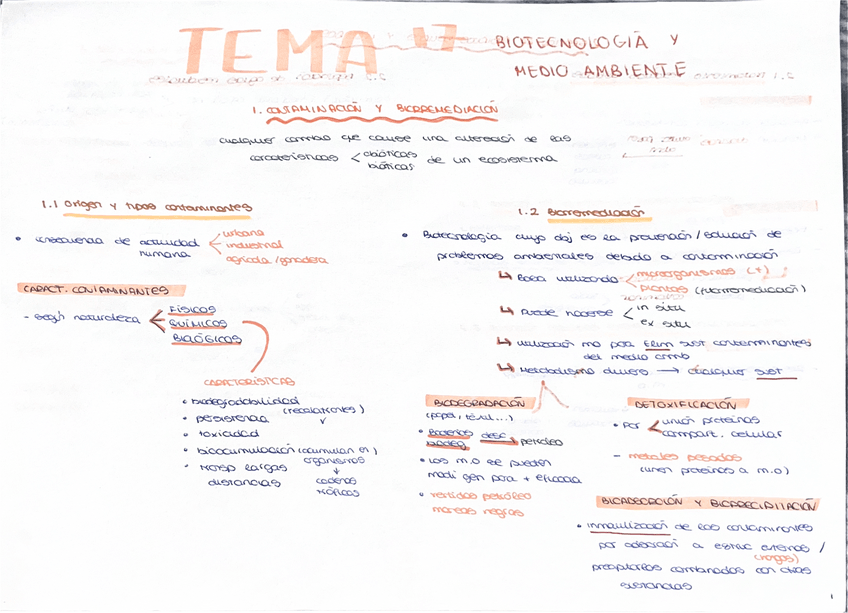 TEMA 17 BIOTECNOLOGÍA Y
MEDIO AMBIENTE
1. CONTAMINACIÓN Y BIORREMEDIACIÓN
cualquier cambio que cause una alteración de las
características < abióticas
bióticas
de un ecosistema
1.1 Origen y tipos contaminantes
• consecuencia de actividad
humana
urbana
industrial
agrícola/ganadera
CARACT. CONTAMINANTES
- según naturaleza
FÍSICOS
QUÍMICOS
BIOLÓGICOS
CARACTERÍSTICAS
• biodegradabilidad
• persistencia (recalcitrantes)
• toxicidad
• bioacumulación (acumulan en)
organismos
↓
cadenas
tróficas
• transp largas
distancias
1.2 Biorremediación
• Biotecnología cuyo obj es la prevención/solución de
problemas ambientales debido a contaminación
↳ Basa utilizando
microorganismos (+)
plantas (fitorremediación)
↳ Puede hacerse < in situ
ex situ
↳ Utilización mo para Elim sust contaminantes
del medio amb
↳ Metabolismo diverso → cualquier sust
BIODEGRADACIÓN
(papel, textil...)
• Bacterias desc petróleo
biodeg
• Los m.o se pueden
modi gen para + eficacia
• vertidos petróleo
mareas negras
DETOXIFICACIÓN
• Por < unión proteínas
compart. celular
- metales pesados
(unen proteínas a m.o)
BIOADSORCIÓN Y BIOPRECIPITACIÓN
• inmovilización de los contaminantes
por adsorción a estruc externas /
(hongos)
precipitarlos combinados con otras
sustancias
1